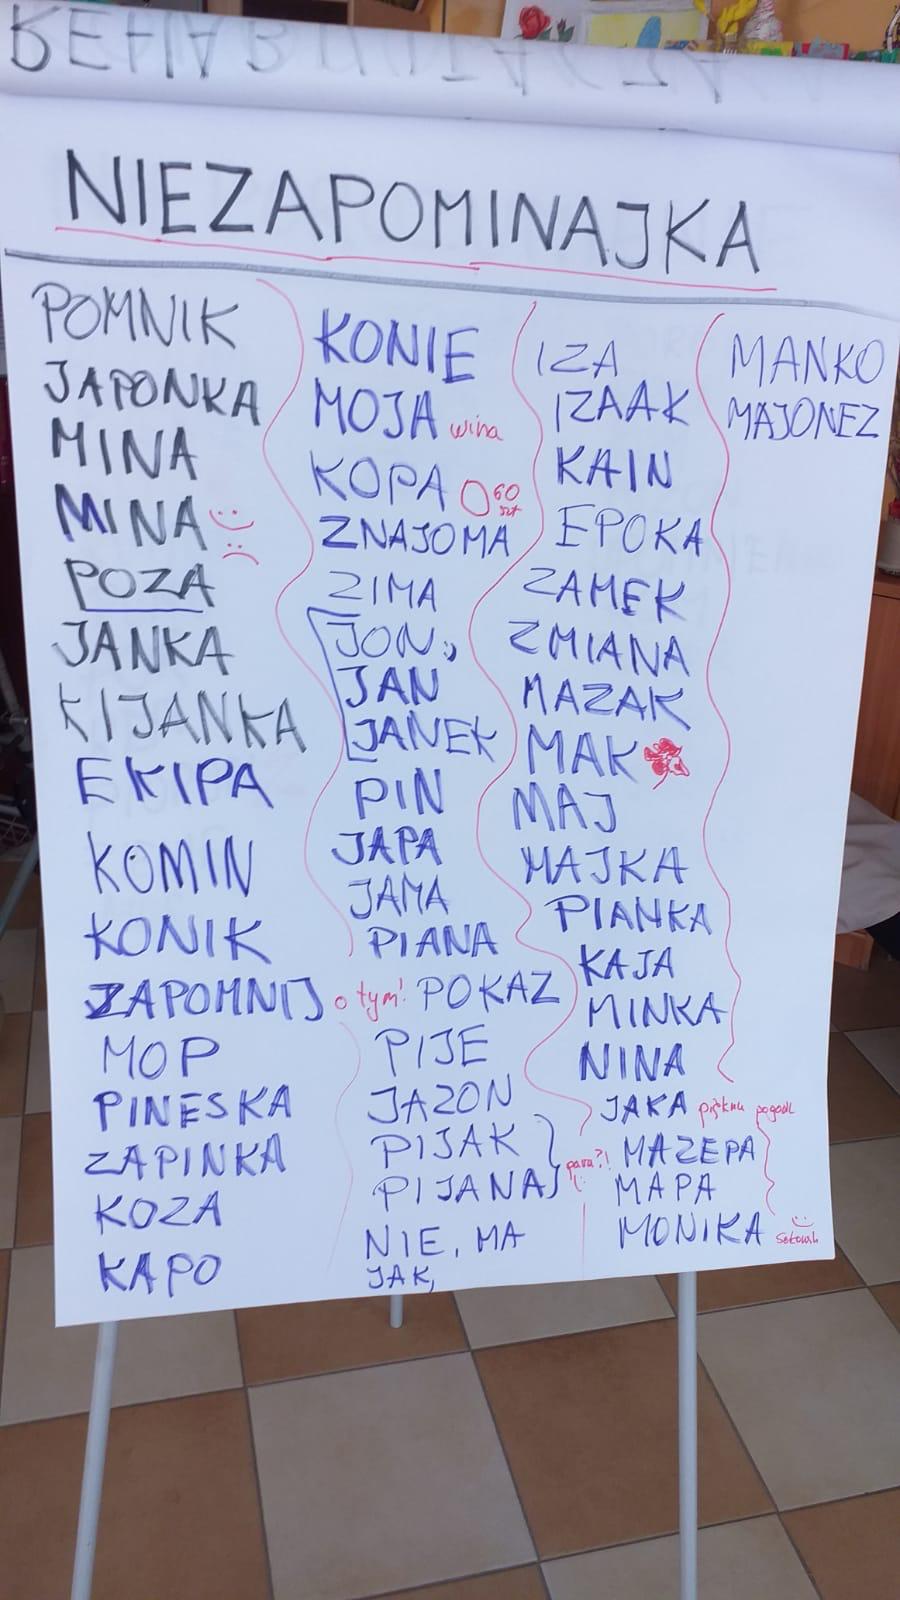 REHABILITACJA
NIEZAPOMINAJKA
POMNIK
JAPONKA
MINA
MINA
POZA
JANKA
KIJANKA
EKIPA
KOMIN
KONIK
ZAPOMNIJ o tym!
MOP
PINESKA
ZAPINKA
KOZA
KAPO
KONIE
MOJA wina
KOPA 60 szt
ZNAJOMA
ZIMA
JON,
JAN
JANEK
PIN
JAPA
JAMA
PIANA
POKAZ
PIJE
JAZON
PIJAK
PIJANA para?!
NIE, MA
JAK,
IZA
IZAAK
KAIN
EPOKA
ZAMEK
ZMIANA
MAZAK
MAK
MAJ
MAJKA
PIANKA
KAJA
MINKA
NINA
JAKA piękna pogoda
MAZEPA
MAPA
MONIKA
MANKO
MAJONEZ